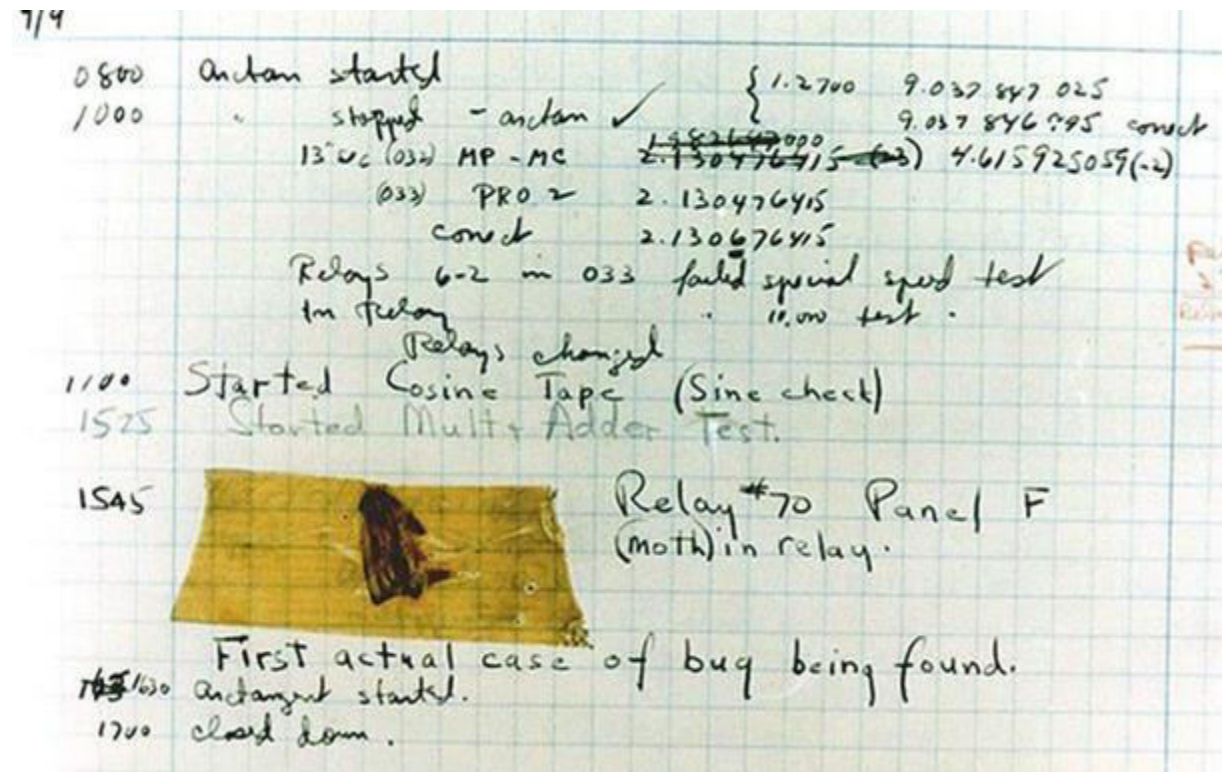 9/9
0800 Arctan started { 1.2700 9.037 847 025
1000 " stopped - arctan ✓ 9.037 846 795 correct
13"uc (032) MP - MC 2.130476415 (-3) 4.615925059(-2)
(033) PRO 2 2.130476415
correct 2.130676415
Relays 6-2 in 033 failed special speed test
In Relay " 11,000 test .
Relays changed
1100 Started Cosine Tape (Sine check)
1525 Started Mult + Adder Test.
1545 Relay #70 Panel F
(moth) in relay.
First actual case of bug being found.
1630 arctangent started.
1700 closed down .